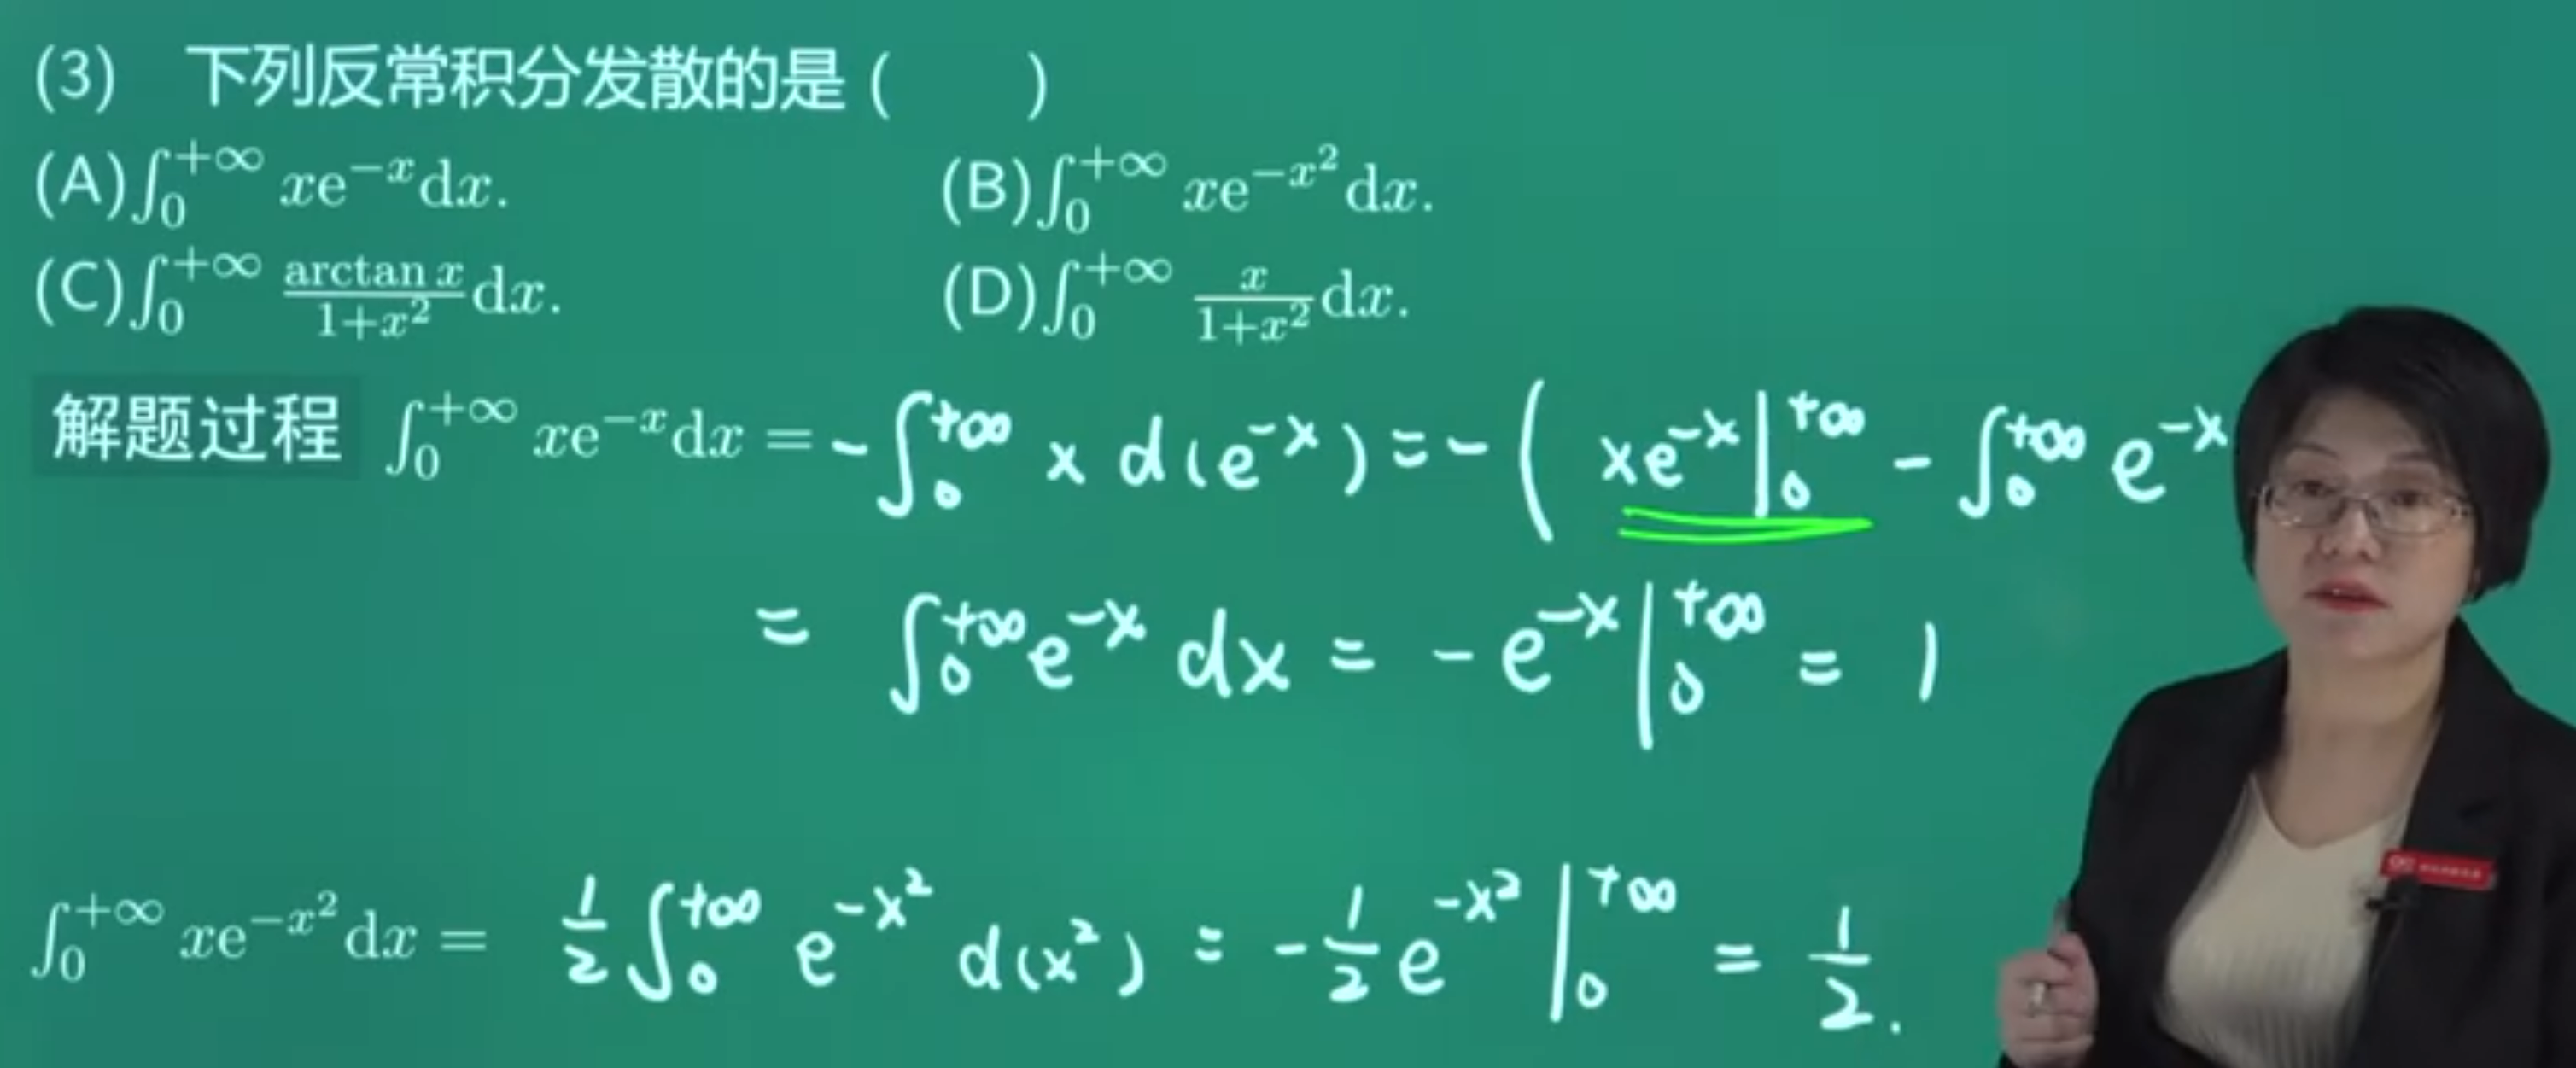 (3) 下列反常积分发散的是 ( )
(A) ∫₀^{+∞} xe^{−x}dx. (B) ∫₀^{+∞} xe^{−x²}dx.
(C) ∫₀^{+∞} \frac{arctan x}{1+x²}dx. (D) ∫₀^{+∞} \frac{x}{1+x²}dx.
解题过程 ∫₀^{+∞} xe^{−x}dx = −∫₀^{+∞} x d(e^{−x}) = −( xe^{−x}|₀^{+∞} − ∫₀^{+∞} e^{−x}
= ∫₀^{+∞} e^{−x} dx = −e^{−x}|₀^{+∞} = 1
∫₀^{+∞} xe^{−x²}dx = \frac{1}{2}∫₀^{+∞} e^{−x²} d(x²) = −\frac{1}{2}e^{−x²}|₀^{+∞} = \frac{1}{2}.